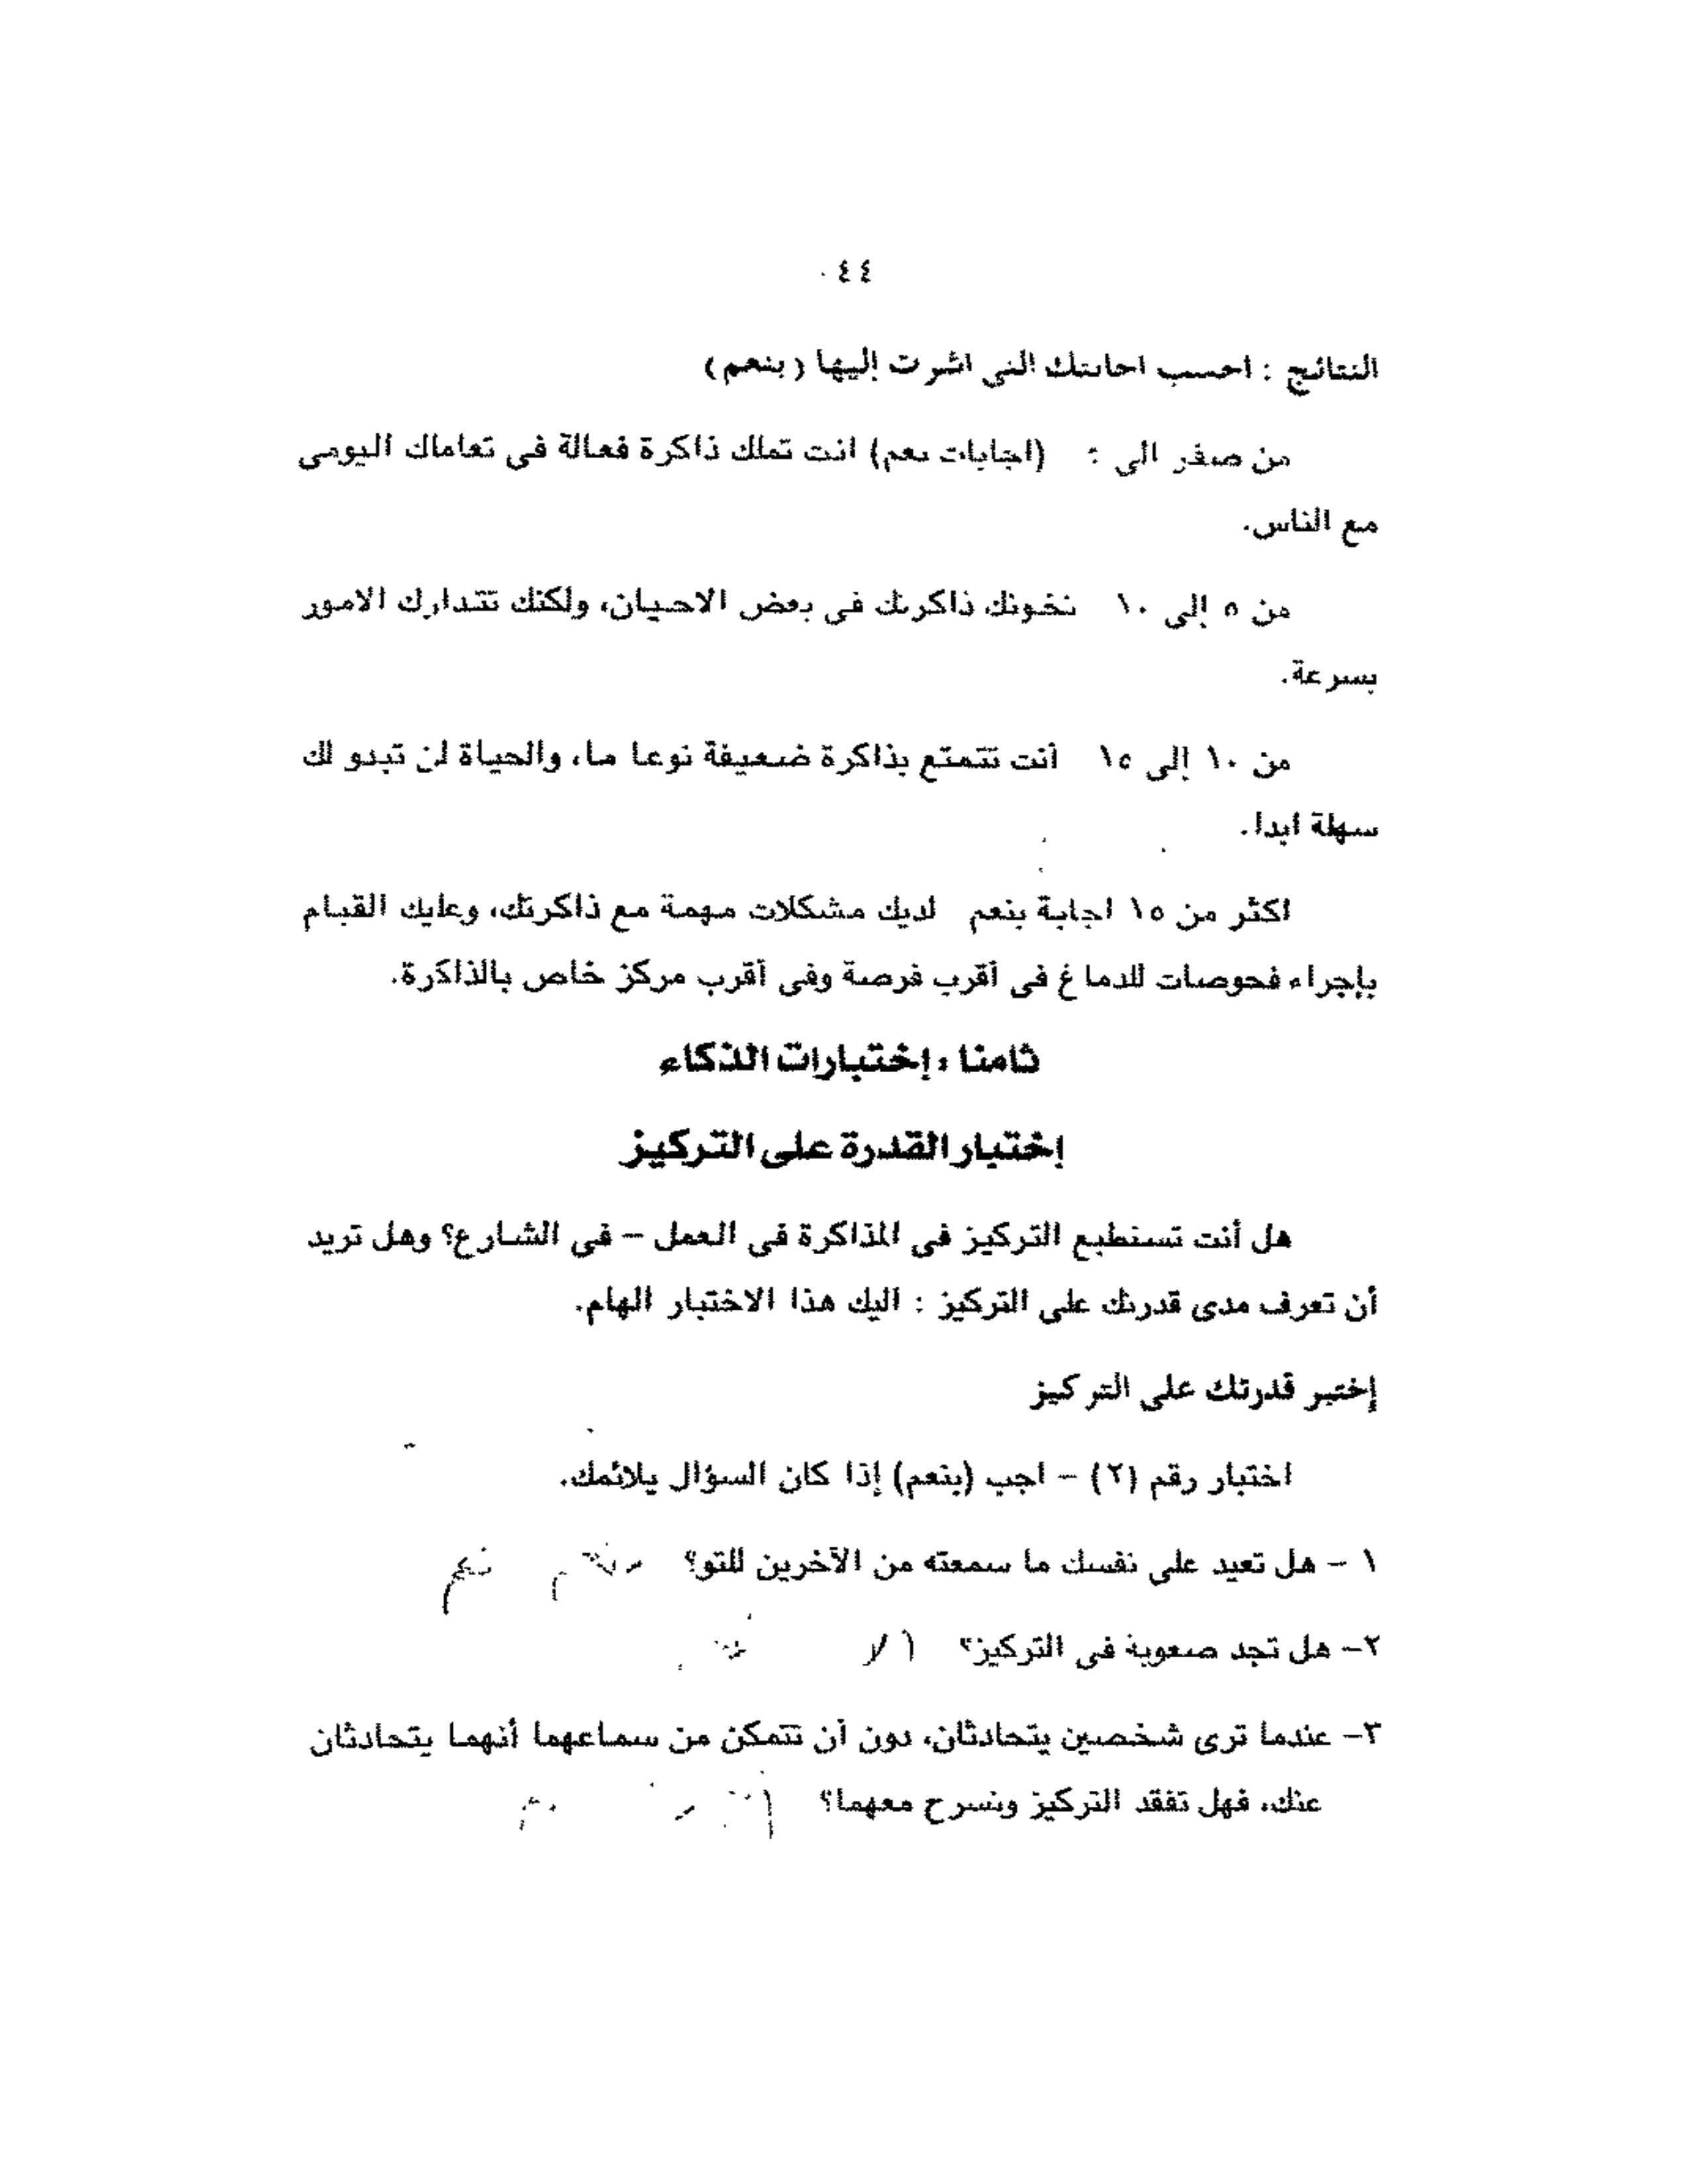 ٤٤
النتائج : احسب اجابتك التى اشرت إليها (بنعم)
من صفر الى ٤ (اجابات نعم) انت تملك ذاكرة فعالة فى تعاملك اليومى
مع الناس.
من ٥ إلى ١٠ تخونك ذاكرتك فى بعض الاحيان، ولكنك تتدارك الامور
بسرعة.
من ١٠ إلى ١٥ أنت تتمتع بذاكرة ضعيفة نوعا ما، والحياة لن تبدو لك
سهلة ابدا.
اكثر من ١٥ اجابة بنعم لديك مشكلات مهمة مع ذاكرتك، وعليك القيام
بإجراء فحوصات للدماغ فى أقرب فرصة وفى أقرب مركز خاص بالذاكرة.
ثامنا : إختبارات الذكاء
إختبار القدرة على التركيز
هل أنت تستطيع التركيز فى المذاكرة فى العمل – فى الشارع؟ وهل تريد
أن تعرف مدى قدرتك على التركيز : اليك هذا الاختبار الهام.
إختبر قدرتك على التركيز
اختبار رقم (٢) – اجب (بنعم) إذا كان السؤال يلائمك.
١ – هل تعيد على نفسك ما سمعته من الآخرين للتو؟ نعم
٢– هل تجد صعوبة فى التركيز؟ لا
٣– عندما ترى شخصين يتحادثان، دون أن تتمكن من سماعهما أنهما يتحادثان
عنك، فهل تفقد التركيز وتسرح معهما؟